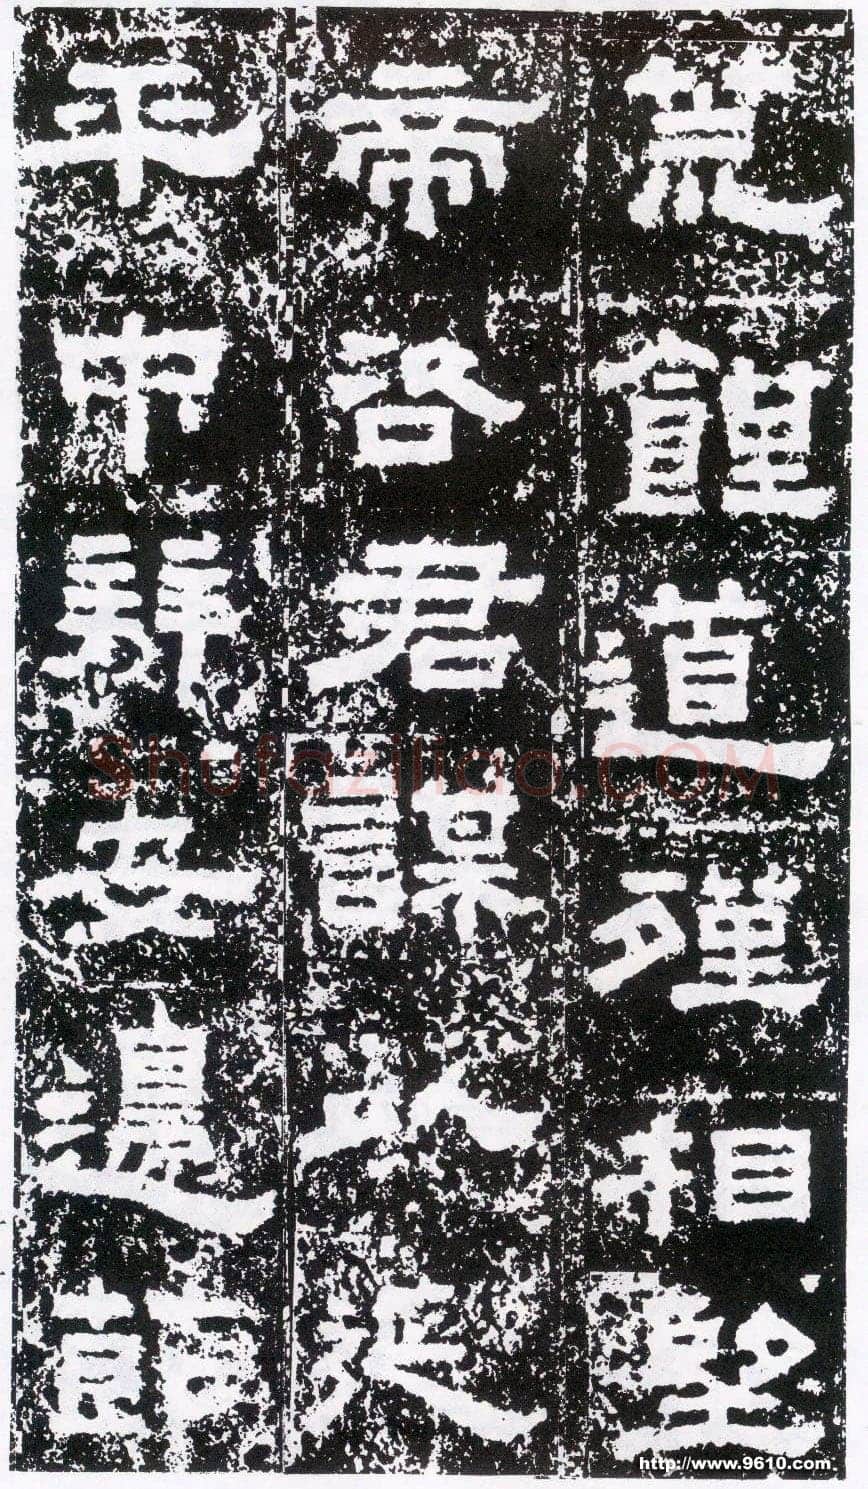 荒饉道殣相望
帝咨君謀以延
平中拜安邊節
Shufaziliao.COM
http://www.9610.com